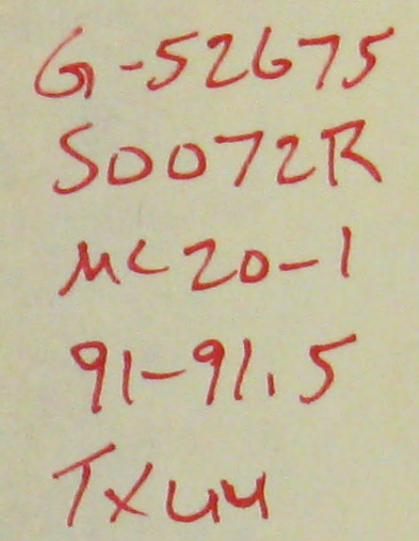 G-52675
S0072R
MC20-1
91-91.5
TX44